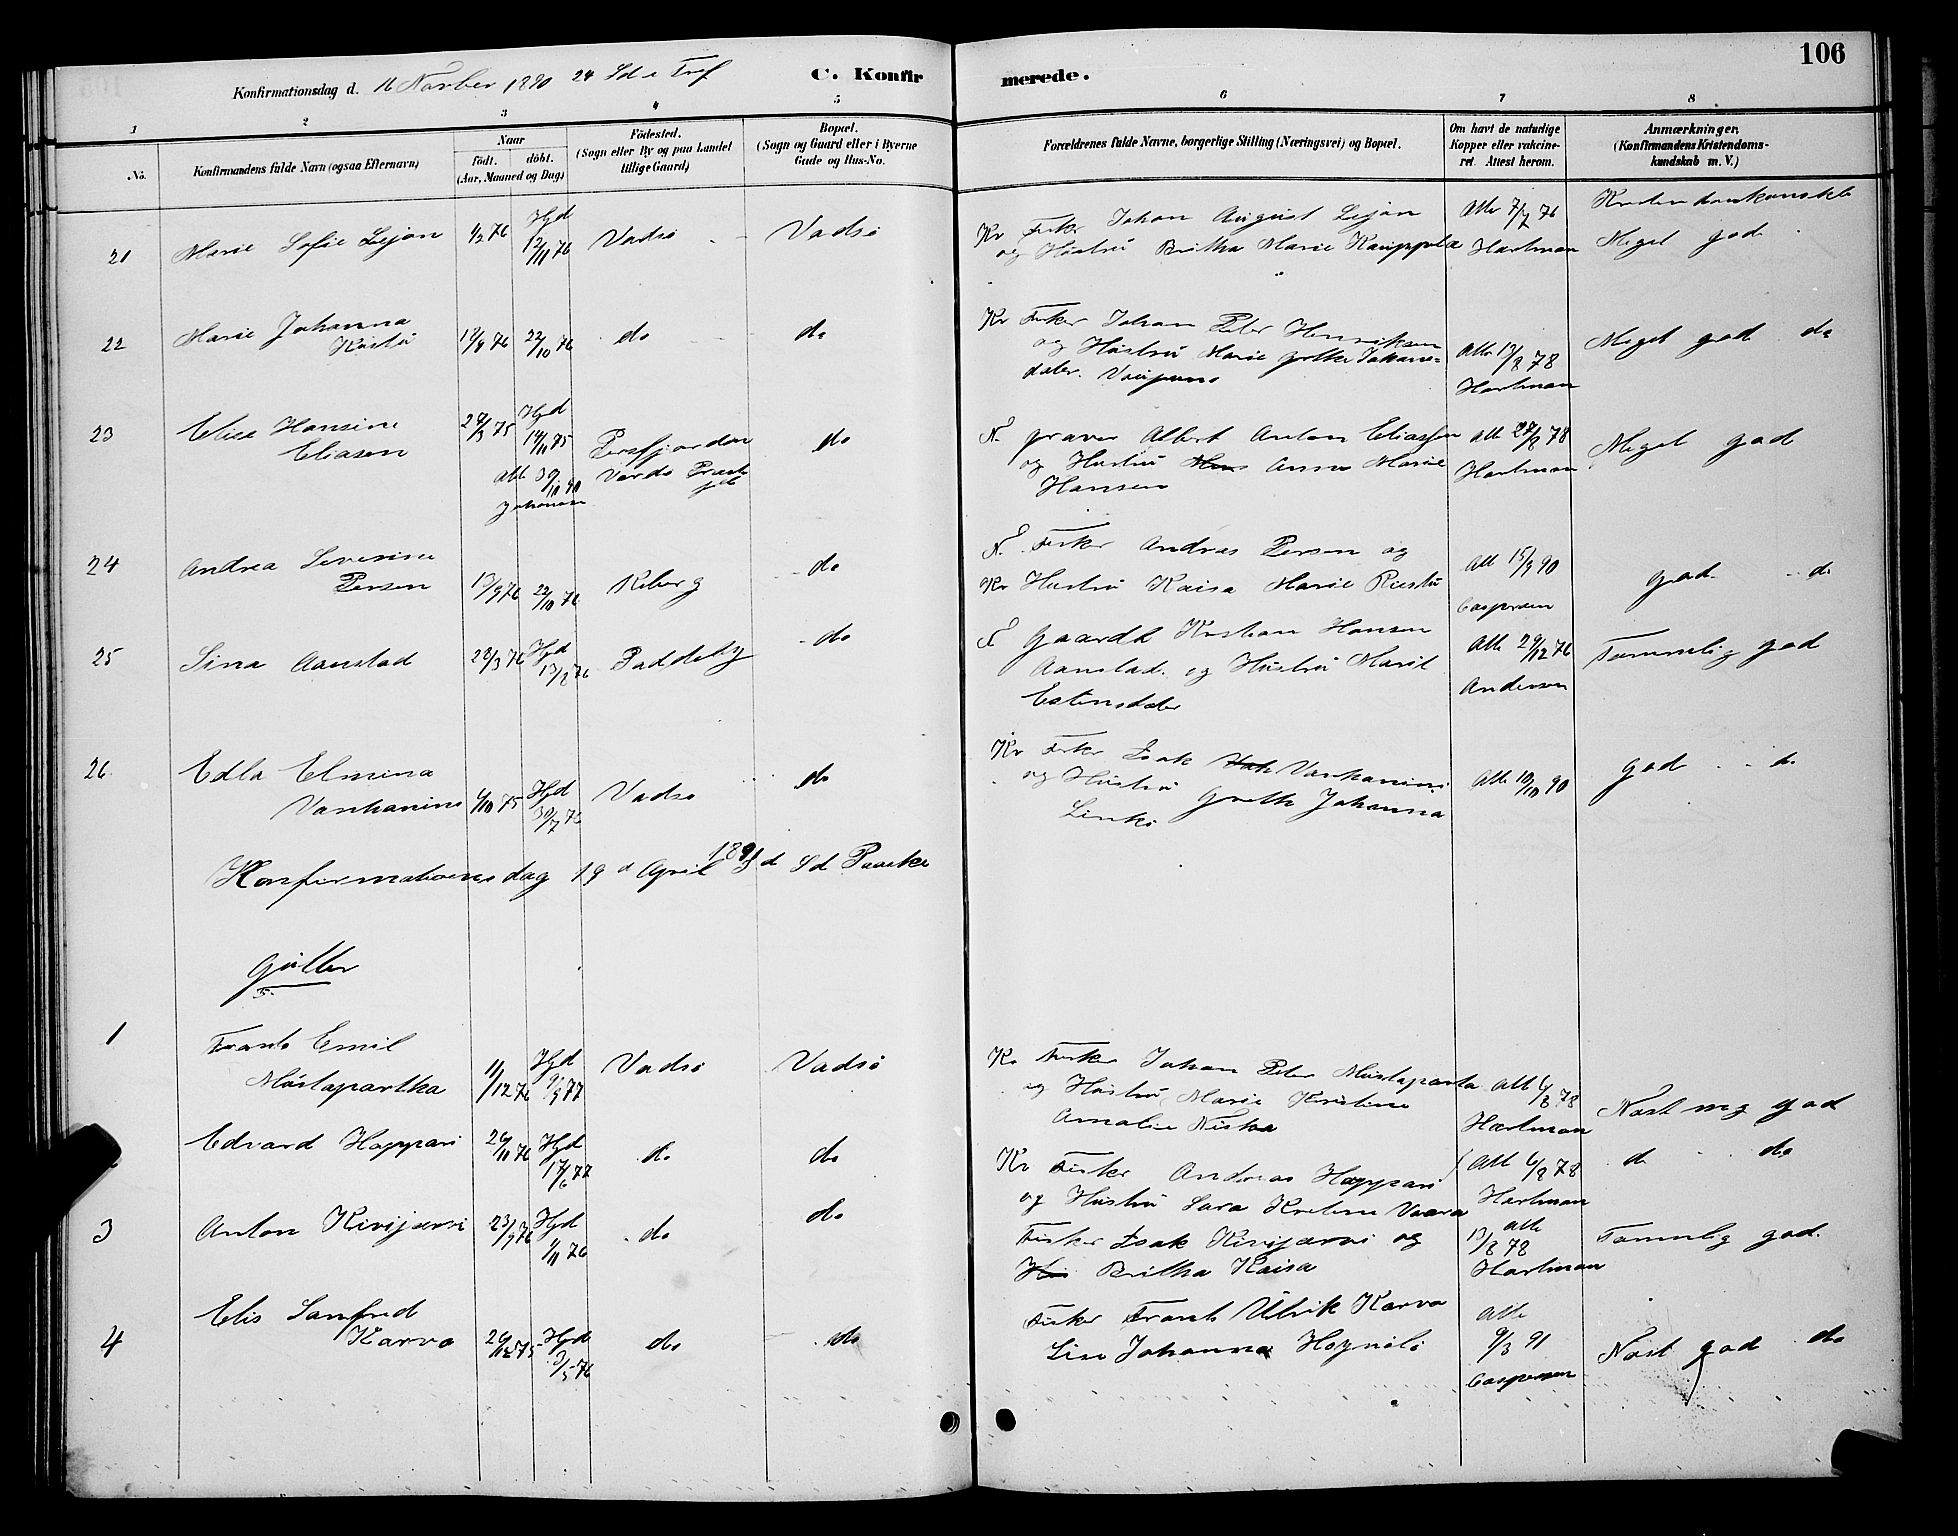 106
C. Konfirmerede.
Konfirmationsdag d. 16 Novber 1890 24 Sd e Tref
1 2 3 4 5 6 7 8
No.
Konfirmandens fulde Navn (ogsaa Efternavn)
Naar
født. døbt.
(Aar, Maaned og Dag)
Fødested.
(Sogn eller By og paa Landet
tillige Gaard)
Bopæl.
(Sogn og Gaard eller i Byerne
Gade og Hus-No.
Forældrenes fulde Navne, borgerlige Stilling (Næringsvei) og Bopæl.
Om havt de naturlige
Kopper eller vakcine-
ret. Attest herom.
Anmærkninger.
(Konfirmandens Kristendoms-
kundskab m. V.)
21 Marie Sofie Lejon 1/3 76 Hjd 12/11 76 Vadsø Vadsø
Kv Fisker Johan August Lejon
og Hustru Britha Marie Kauppila
Att 7/7 76
Hartman
Meget god
22 Marie Johanna
22/10 76 do do
Kv Fisker Johan Peter Henriksen
og Hustru Marie Grethe Johans-
datter
Att 13/8 78
Hartman
Meget god do
23 Elise Hansine
Eliasen 29/3 75 Hjd 14/11 75
Att 30/10 90
Johansen
Persfjorden
Vardø Præste
gjeld
do
N. Graver Albert Anton Eliassen
og Hustru Anne Marie
Hansen
Att 28/8 78
Hartman
Meget god
24 Andrea Severine
Persen 13/9 76 22/10 76 Kiberg do
N. Fisker Andreas Persen og
Kv Hustru Kaisa Marie
Att 15/9 90
Caspersen
god do
25 Sina Aanstad 28/3 76 Hjd 13/8 76 Paddeby do
N Gaardb Kristian Hansen
Aanstad og Hustru Marit
Estensdater
Att 29/12 76
Andersen
Temmelig god
26 Edla Elmina
Vanhanine 6/10 75 Hjd 30/7 76 Vadsø do
Kv Fisker Isak Vanhanine
og Hustru Grethe Johanna
Linko
Att 10/10 90
god do
Konfirmationsdag 19d April 1891 3d Sd Paaske
Gutter
1 Frants Emil
Mustaparkka 11/12 76 Hjd 9/9 77 Vadsø Vadsø
Kv Fisker Johan Peter Mustaparta
og Hustru Marie Kristine
Amalie Niska
Att 6/8 78
Hartman
Næst mg god
Edvard Happari 26/11 76 Hjd 17/6 77 do do
Kv Fisker Andreas Happari
og Hustru Sara Kristine Vaara
Att 6/8 78
Hartman
do do
3 Anton Kivijærvi 23/9 76 Hjd 9/11 76 do do
Fisker Isak Kivijærvi og
Britha Kaisa
Att
13/8 78
Hartman
Temmelig god.
4 Elis Sanfred
Karvo Hjd 3/5 76 do do
Fisker Frants Ulrik Karvo
Lise Johanna
Att
9/3 91
Caspersen
Næst god do